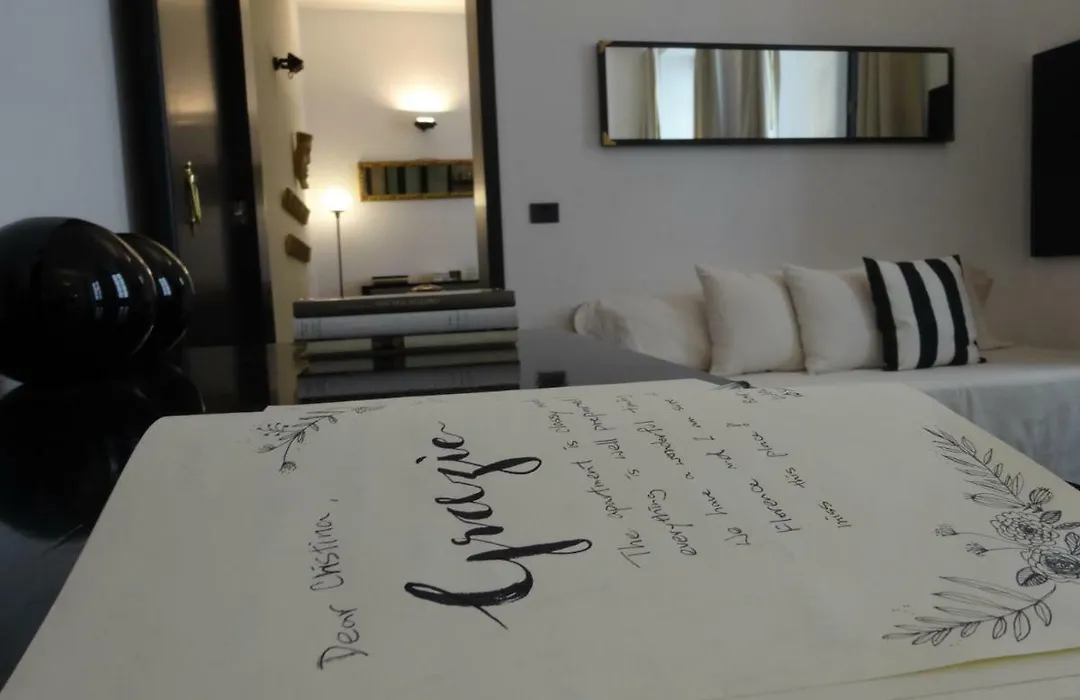 Dear Cristina,
Grazie
The apartment is classy and
everything is well prepared
We have a wonderful time
Florence and I am sure I
miss this place!